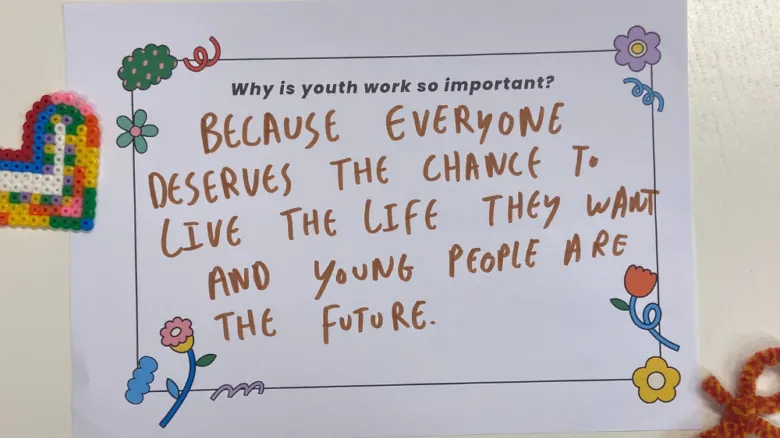 Why is youth work so important?
BECAUSE EVERYONE
DESERVES THE CHANCE TO
LIVE THE LIFE THEY WANT
AND YOUNG PEOPLE ARE
THE FUTURE.